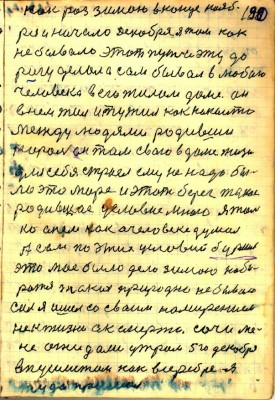 как раз зимою в конце нояб-
ря и начало декабря я там как
не бывало этот путь и эту до
рогу делал а сам бывал в любого
человека в его жилом доме он
в нем жил и тужил как
между людями родивши
он там свого в доме
для себя строел ему не надо бы-
ло это море и этот берег такое
родивщае условие много я толь
ко о нем как о человеке думал
А сам по этих условий бурных
это мое было дело зимою
в таких природно не бывало
сил я ишел со своим намерением
не к жизни а к смерти, со чи ме-
не ожидали утром 5го декабря
как
туда